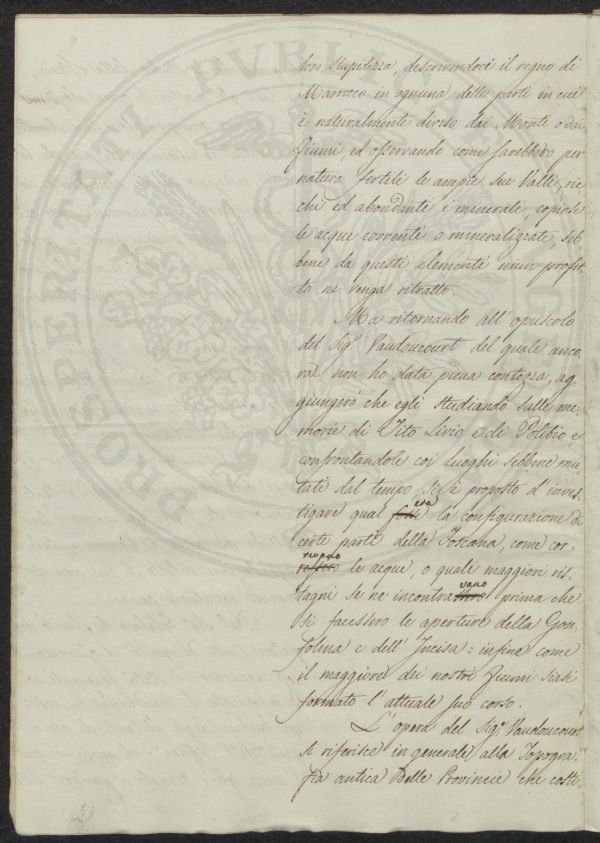 loro stupidezza, descrivendoci il regno di
Marrocco in ognuna delle parti in cui
è naturalmente diviso dai Monti o dai
fiumi, ed osservando come sarebbero per
natura fertili le ampie sue Valli, ric-
chi ed abondanti i minerali, copiose
le acque correnti o mineralizzate, seb-
bene da questi elementi niun profit-
to ne venga ritratto.
Ma ritornando all'opuscolo
del Sigr. Vaudoucourt del quale anco-
ra non ho data piena contezza, ag-
giungerò che egli studiando sulle me-
morie di Tito Livio e di Polibio e
confrontandole coi luoghi sebbene mu-
tati dal tempo si è proposto d'inves-
tigare qual era la configurazione di
certe parti della Toscana, come cor-
revano le acque, o quali maggiori ris-
tagni se ne incontravano prima che
si facessero le aperture della Gon-
folina e dell'Incisa: infine come
il maggiore dei nostri fiumi siasi
formato l'attuale suo corso.
L'opera del Sigr. Vaudoucourt
si riferisce in generale alla Topogra-
fia antica delle Provincie che costi-
PROSPERITATI PUBL